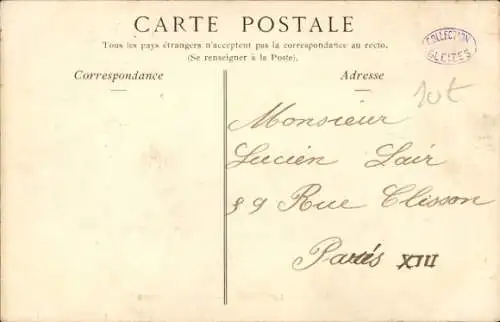 CARTE POSTALE
Tous les pays étrangers n'acceptent pas la correspondance au recto.
(Se renseigner à la Poste).
COLLECTION
GLEIZES
Correspondance
Adresse
10€
Monsieur
Lucien Lair
59 Rue Clisson
Paris XIII